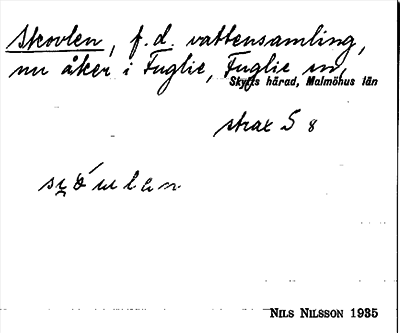 Skovlen, f.d. vattensamling,
nu åker i Fuglie, Fuglie sn,
Skytts härad, Malmöhus län
strax S 8
Nils Nilsson 1935